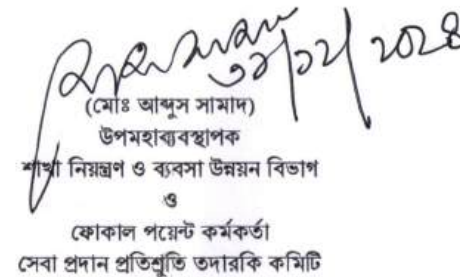 ৩১/১২/২০২৪
(মোঃ আব্দুস সামাদ)
উপমহাব্যবস্থাপক
শাখা নিয়ন্ত্রণ ও ব্যবসা উন্নয়ন বিভাগ
ও
ফোকাল পয়েন্ট কর্মকর্তা
সেবা প্রদান প্রতিশ্রুতি তদারকি কমিটি